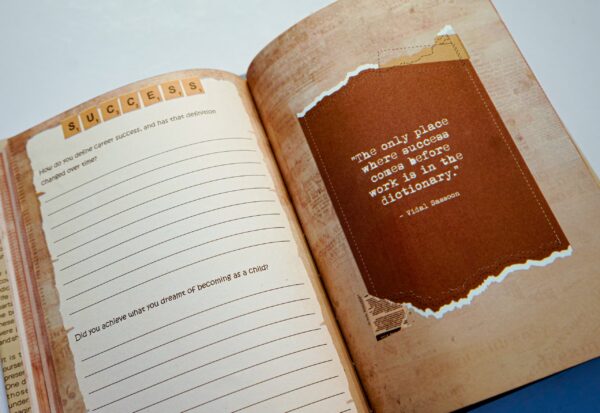 SUCCESS
How do you define career success, and has that definition
changed over time?
Did you achieve what you dreamt of becoming as a child?
"The only place
where success
comes before
work is in the
dictionary."
- Vidal Sassoon